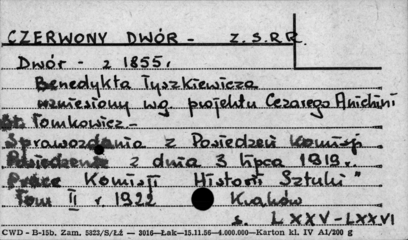 CZERWONY DWÓR - Z.S.R.R.
Dwór - z 1855r.
Benedykta Tyszkiewicza
wzniesiony wg. projektu Cezarego Anichini
St. Tomkowicz -
Sprawozdania z Posiedzeń Komisji
Posiedzenie z dnia 3 lipca 1919 r.
Prace Komisji Historii Sztuki"
Tom II r 1922 Kraków
s. LXXV-LXXVI
CWD - B-15b, Zam. 5323/S/Łż — 3016—Łak—15.11.56—4.000.000—Karton kl. IV A1/200 g